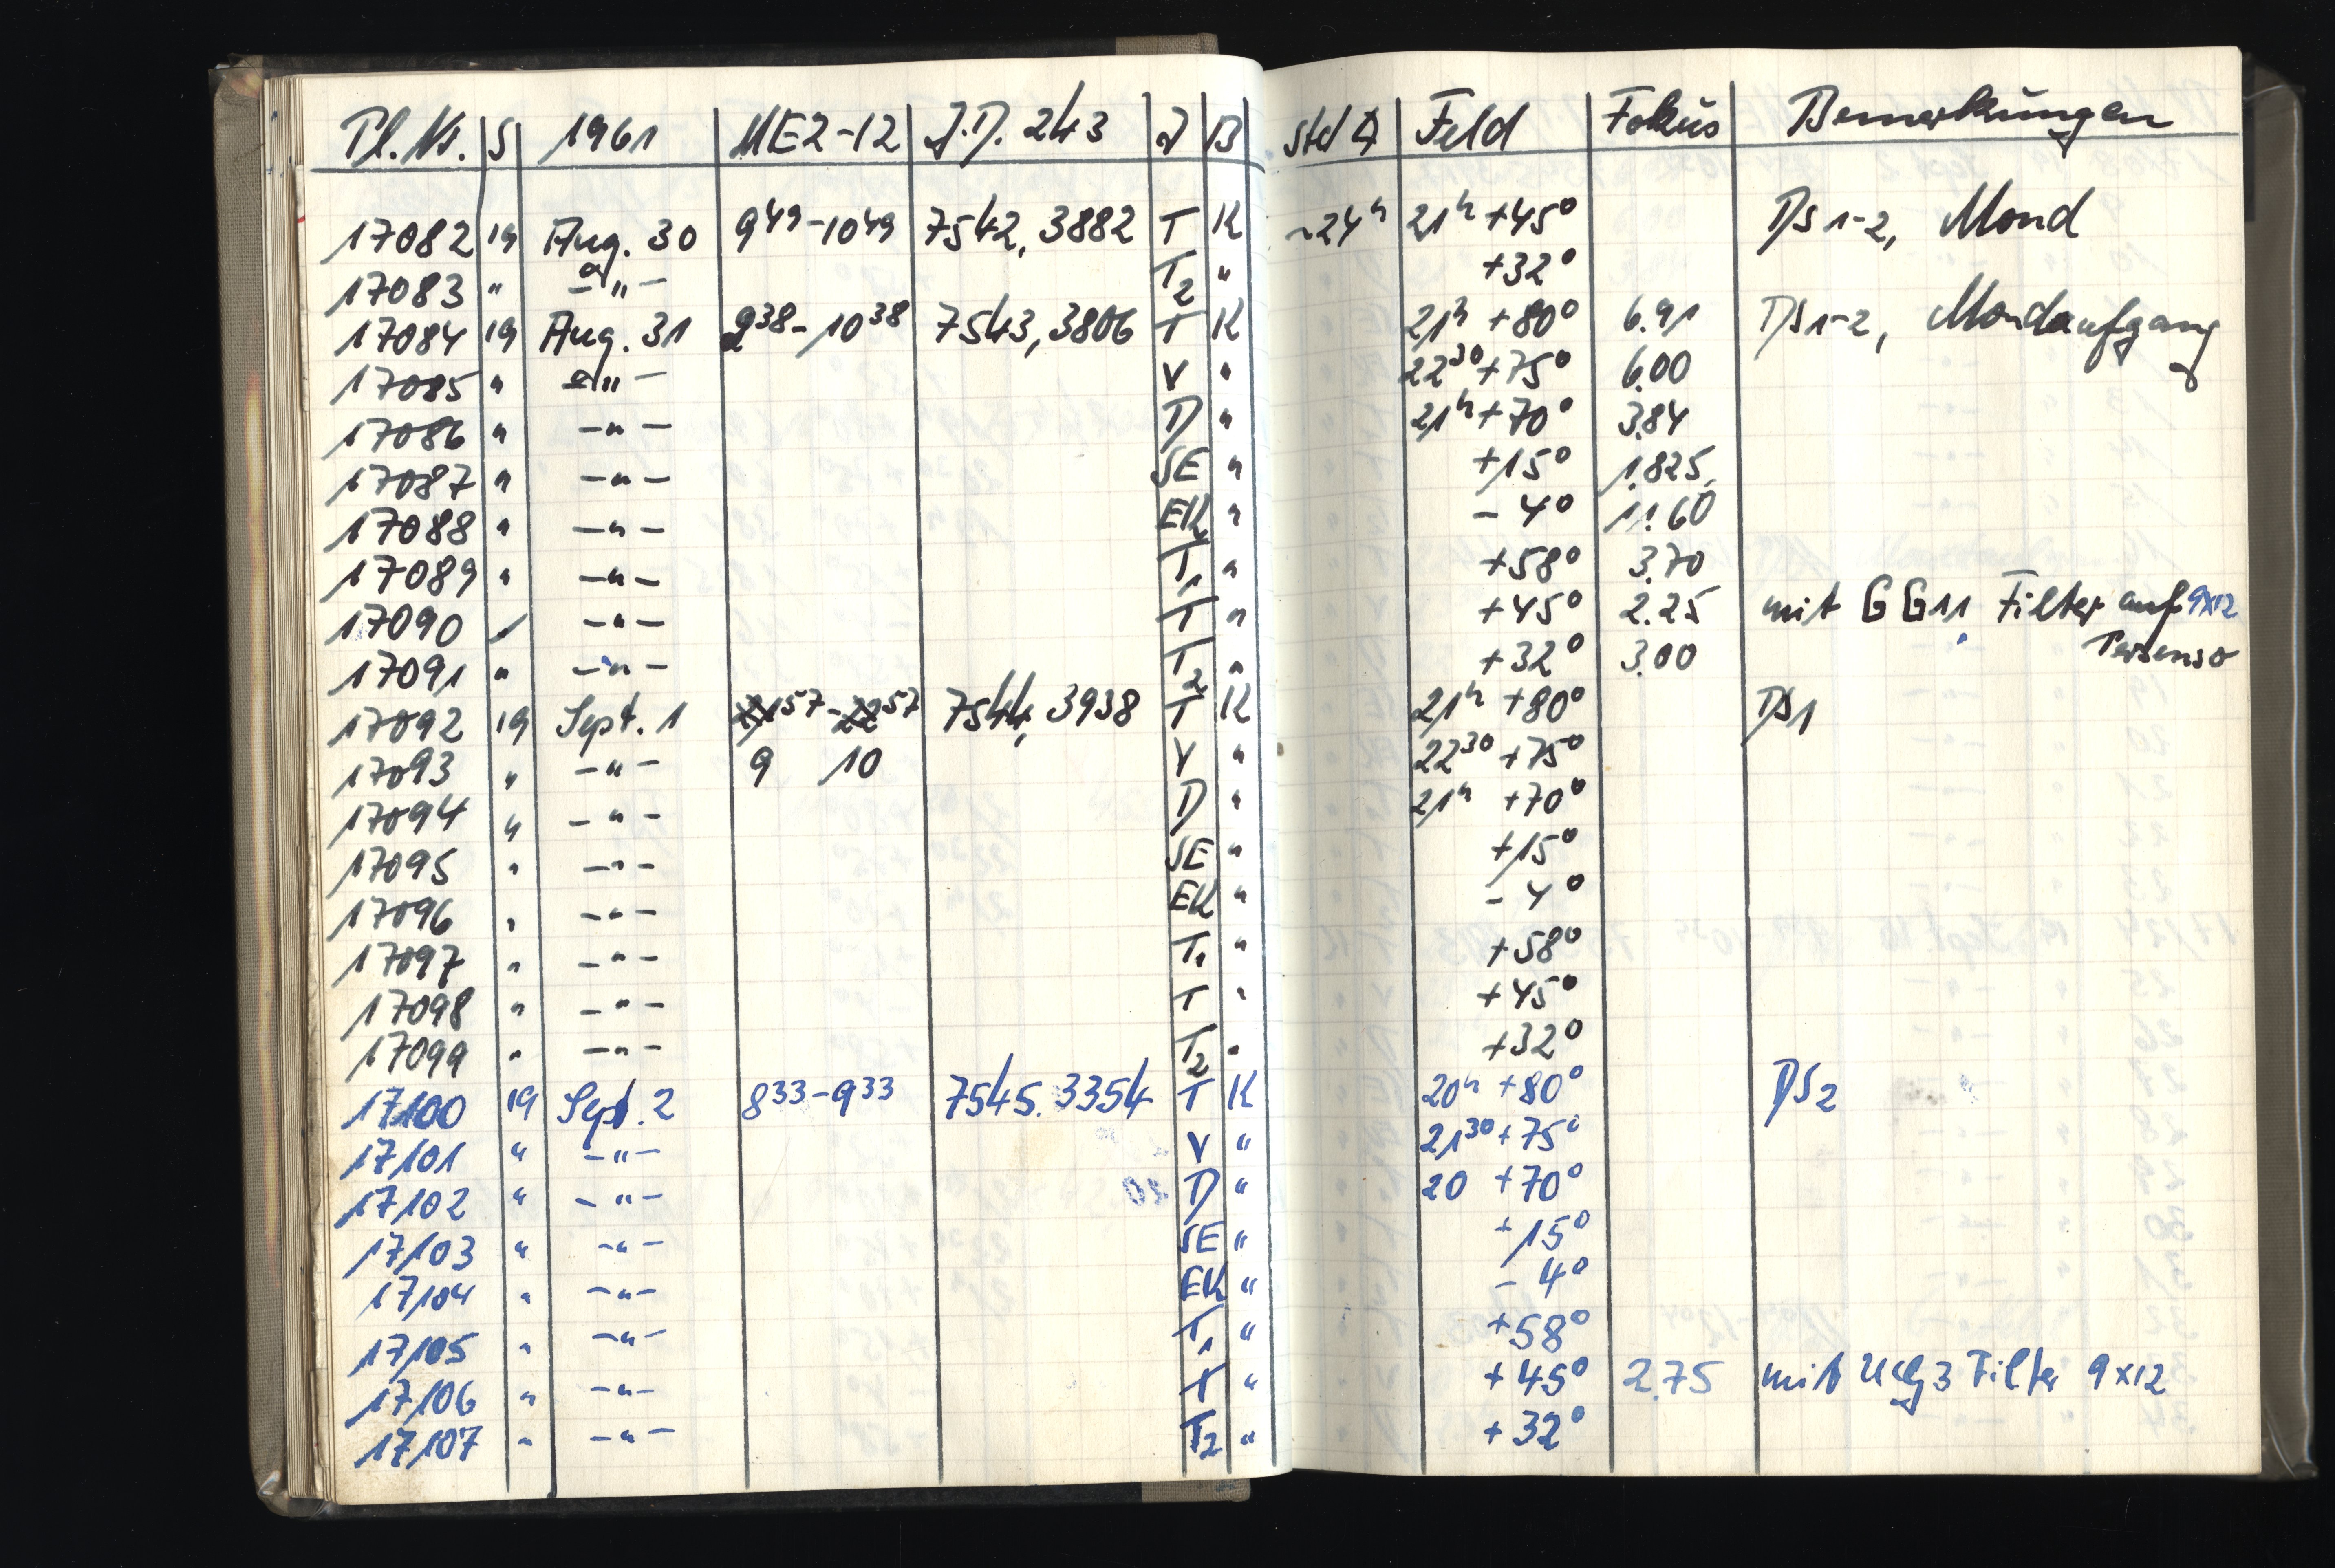 Pl. Nr. S 1961 MEZ-12 J.D. 243 J B Std ∢ Feld Fokus Bemerkungen
17082 19 Aug. 30 9⁴⁹-10⁴⁹ 7542,3882 T K ~24ʰ 21ʰ +45° DS 1-2, Mond
17083 " -"- T₂ " +32°
17084 19 Aug. 31 9³⁸-10³⁸ 7543,3806 T K 21ʰ +80° 6.91 DS 1-2, Mondaufgang
17085 " -"- V " 22³⁰ +75° 6.00
17086 " -"- D " 21ʰ +70° 3.84
17087 " -"- SE " +15° 1.825
17088 " -"- EK " -4° 11.60
17089 " -"- T₁ " +58° 3.70
17090 " -"- T " +45° 2.25 mit GG11 Filter auf 9x12
17091 " -"- T₂ " +32° 3.00
17092 19 Sept. 1 21⁵⁷-22⁵⁷ 7544,3938 T K 21ʰ +80° DS1
17093 " -"- 9 10 V " 22³⁰ +75°
17094 " -"- D " 21ʰ +70°
17095 " -"- SE " +15°
17096 " -"- EK " -4°
17097 " -"- T₁ " +58°
17098 " -"- T " +45°
17099 " -"- T₂ " +32°
17100 19 Sept. 2 8³³-9³³ 7545.3354 T K 20ʰ +80° DS2
17101 " -"- V " 21³⁰ +75°
17102 " -"- D " 20 +70°
17103 " -"- SE " +15°
17104 " -"- EK " -4°
17105 " -"- T₁ " +58°
17106 " -"- T " +45° 2.75 mit UG3 Filter 9x12
17107 " -"- T₂ " +32°